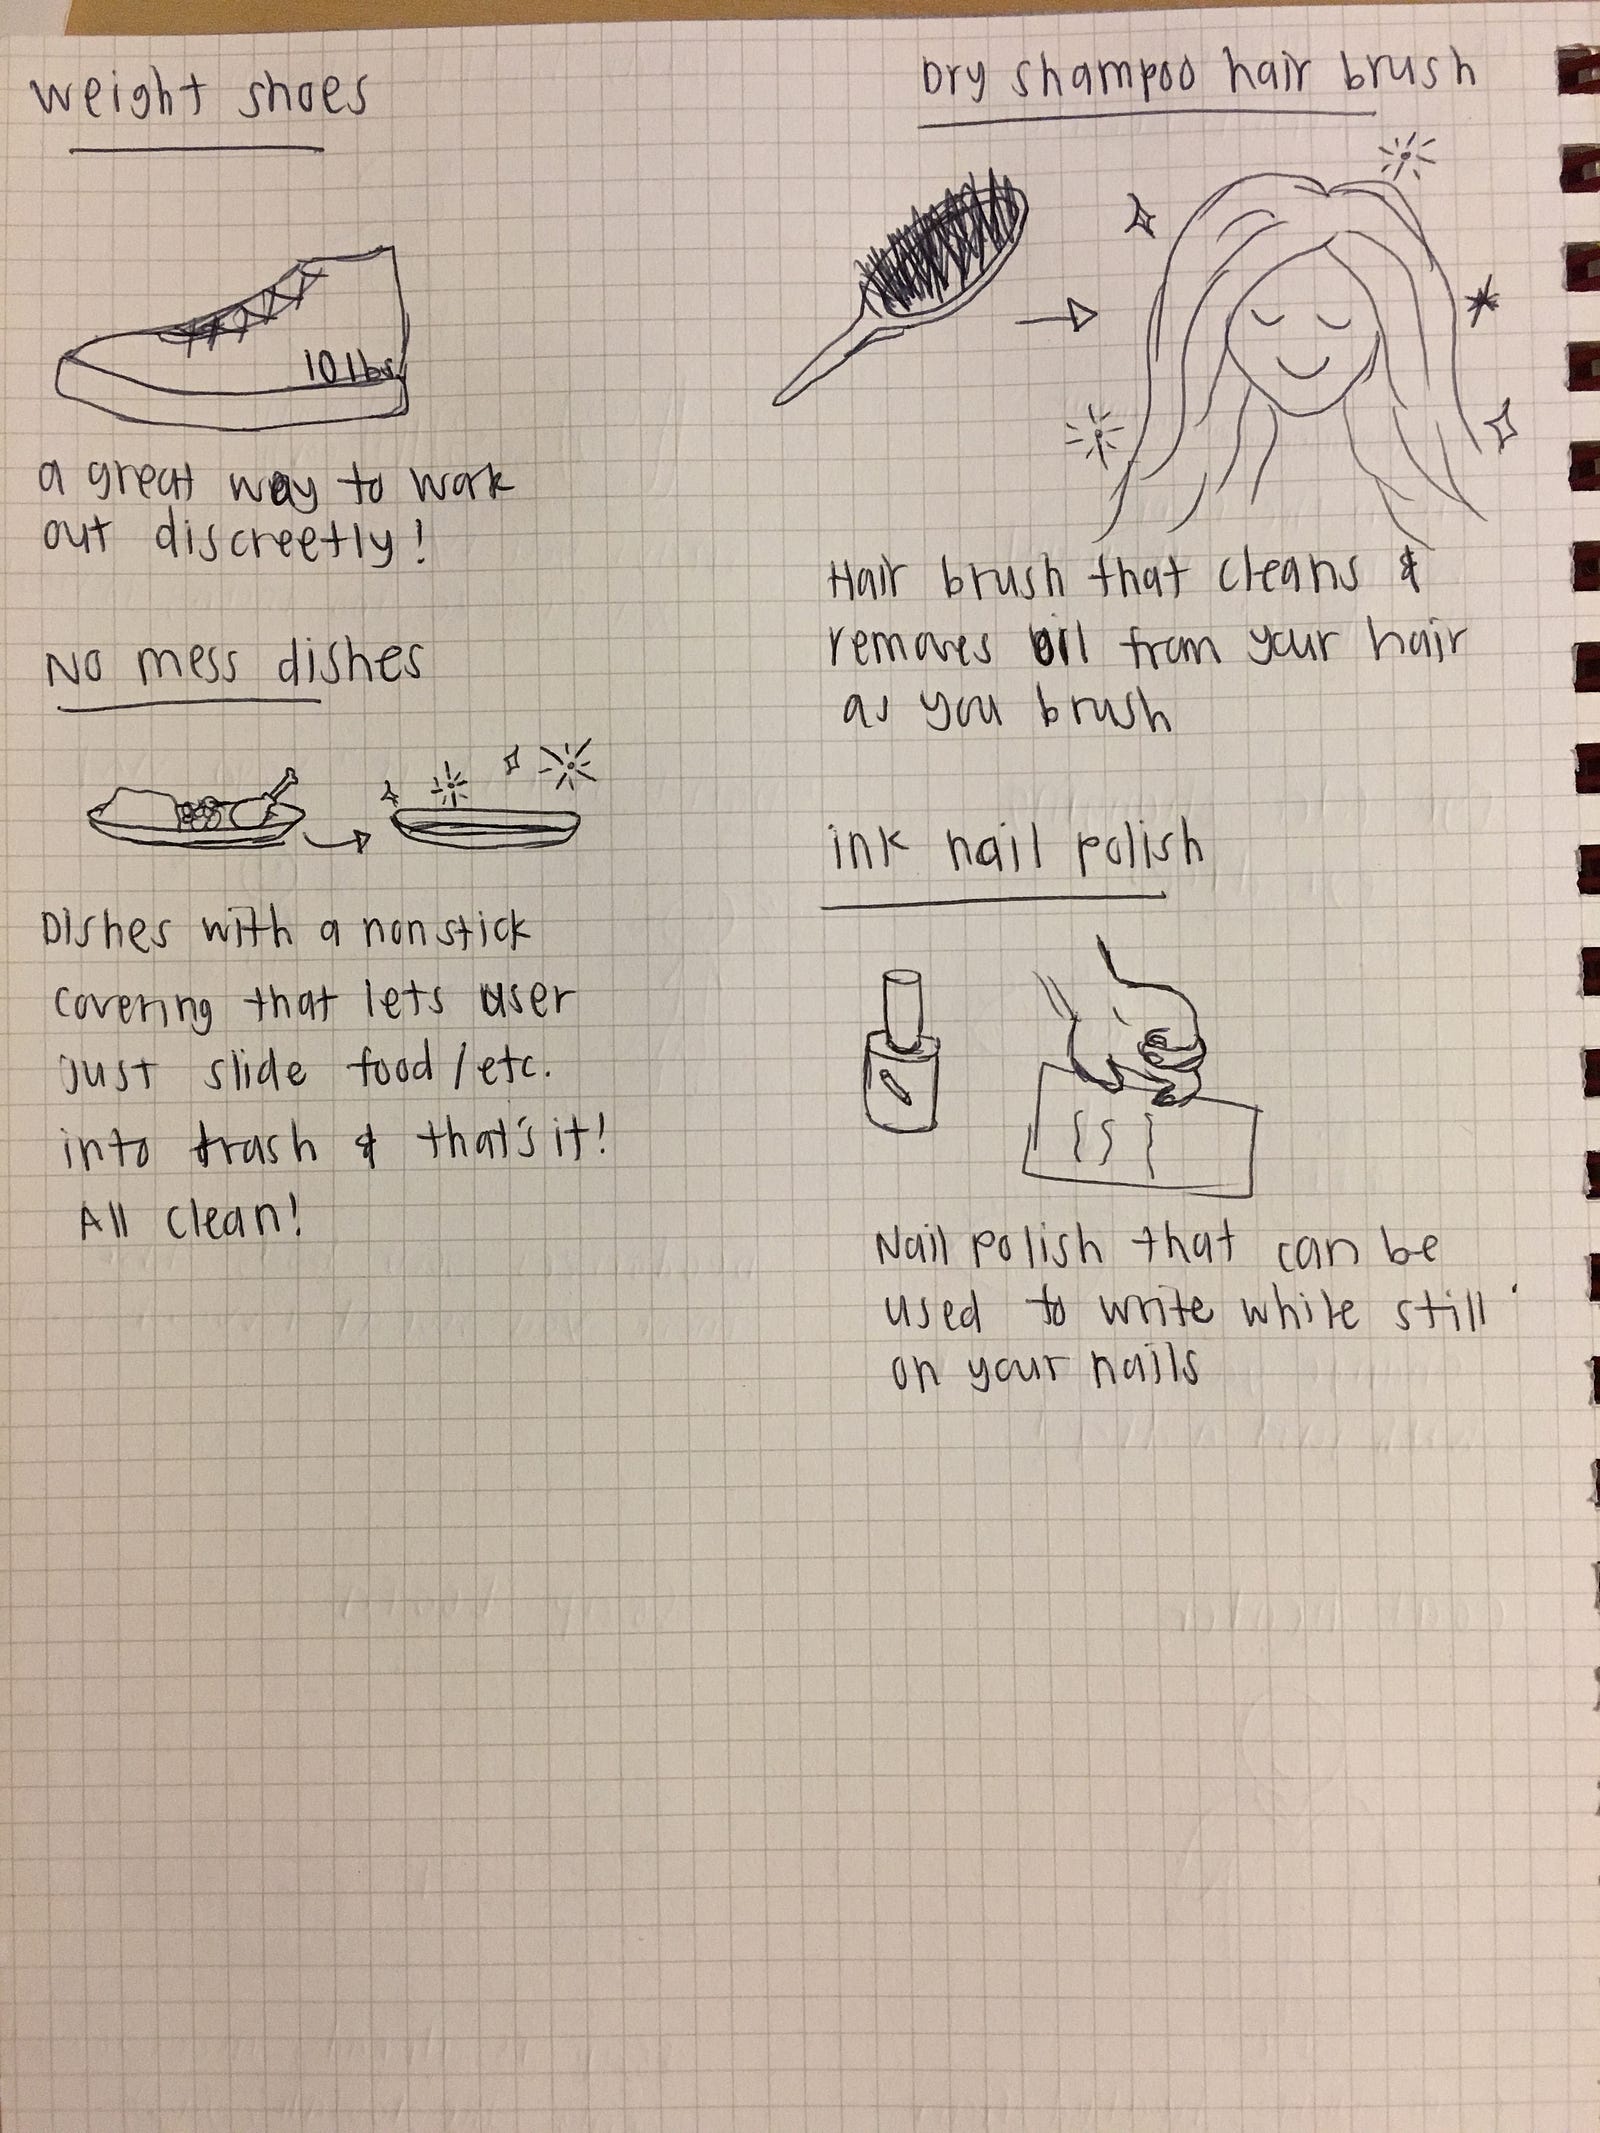 weight shoes
10 lbs
a great way to work
out discreetly!
No mess dishes
Dishes with a nonstick
covering that lets user
just slide food/etc.
into trash & that's it!
All clean!
Dry shampoo hair brush
Hair brush that cleans &
removes oil from your hair
as you brush
ink nail polish
Nail polish that can be
used to write while still
on your nails